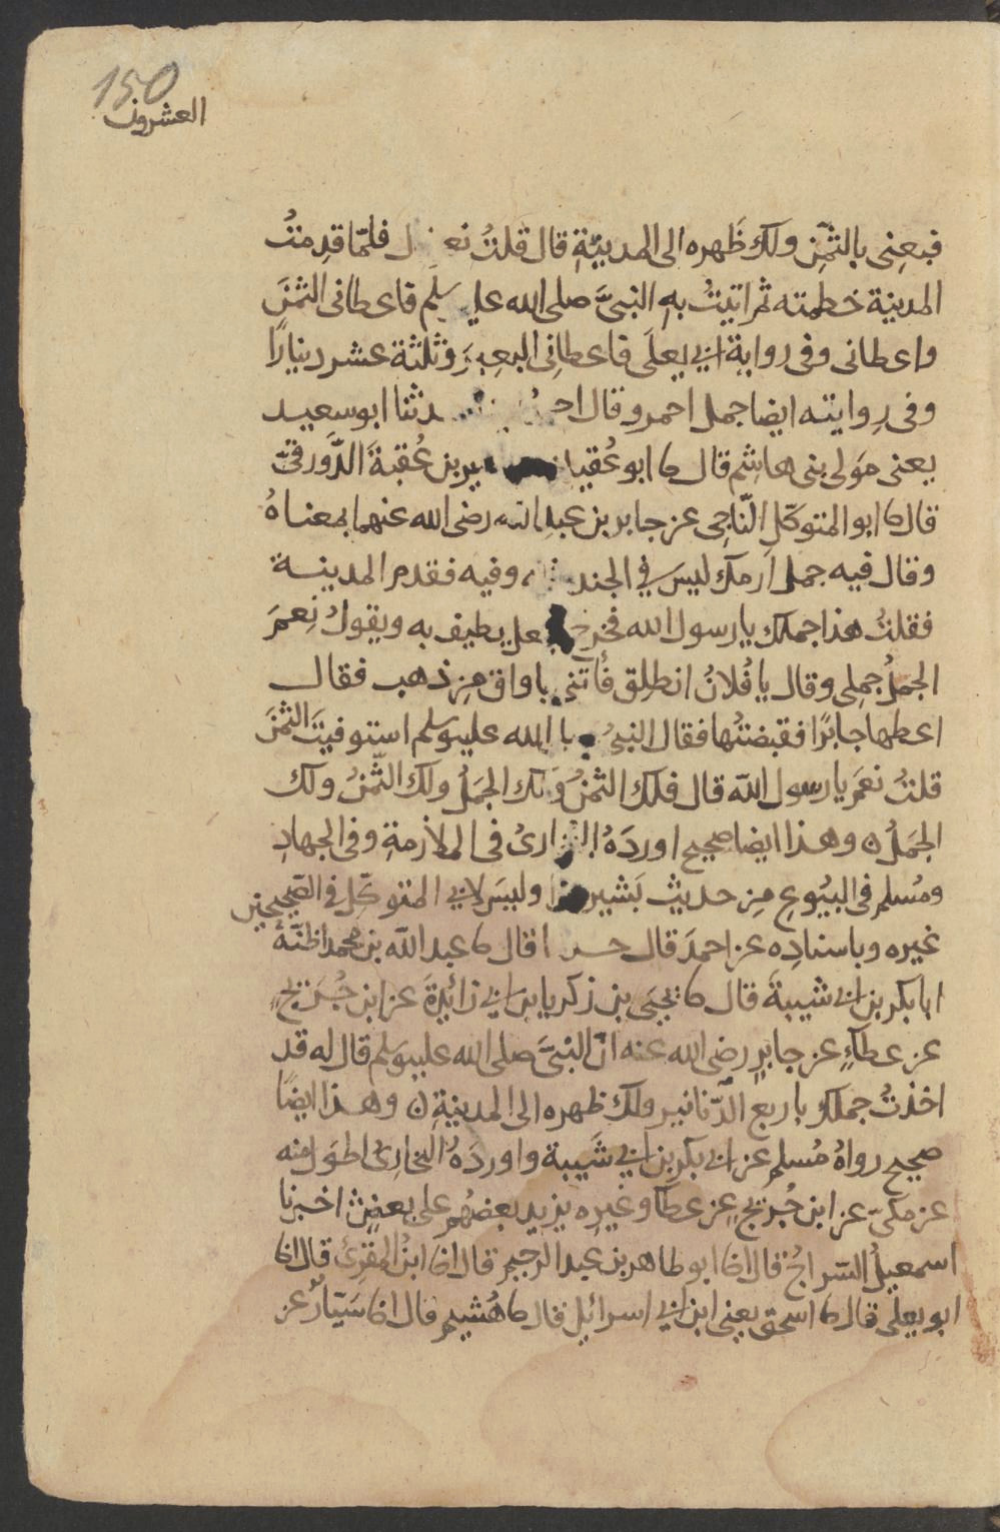 150
العشرون
فبعنى بالثمن ولك ظهره الى المدينة قال قلت فلما قدمت
المدينة خطمته ثم اتيت به النبى صلى الله سلم فاعطانى الثمن
واعطانى وفى رواية ابى يعلى فاعطانى البعير وثلثة عشر دينارا
وفى روايته ايضا جمل احمر وقال ابو سعيد
يعنى مولى بنى هاشم قال ابو عقيل بن عقبة الدورقى
قال ابو المتوكل الناجى عن جابر بن عبد الله رضى الله عنهما بمعناه
وقال فيه جمل ارمك ليس فى الجند وفيه فقدم المدينة
فقلت هذا جملك يا رسول الله فخرج يطيف به ويقول نعم
الجمل جملى وقال يا فلان انطلق فأتنى باواق من ذهب فقال
اعطها جابرا فقبضتها فقال النبى الله عليه وسلم استوفيت الثمن
قلت نعم يا رسول الله قال فلك الثمن ولك الجمل ولك الثمن ولك
الجمل ن وهذا ايضا صحيح اورده البخارى فى الملازمة وفى الجهاد
ومسلم فى البيوع من حديث بشير هذا وليس لابى المتوكل فى الصحيحين
غيره وباسناده عن احمد قال قال عبد الله بن محمد اظنه
ابا بكر بن ابى شيبة قال يحيى بن زكريا بن ابى زائدة عن ابن جريج
عن عطاء عن جابر رضى الله عنه ان النبى صلى الله عليه وسلم قال له قد
اخذت جملك باربع الدنانير ولك ظهره الى المدينة ن وهذا ايضا
صحيح رواه مسلم عن ابى بكر بن ابى شيبة واورده البخارى اطول منه
عن مكى عن ابن جريج عن عطا وغيره يزيد بعضهم على بعض اخبرنا
اسمعيل السراج قال انا ابو طاهر بن عبد الرحيم قال انا ابن المقرئ قال انا
ابو يعلى قال اسحق يعنى ابن ابى اسرائيل قال هشيم قال انا سيار عن